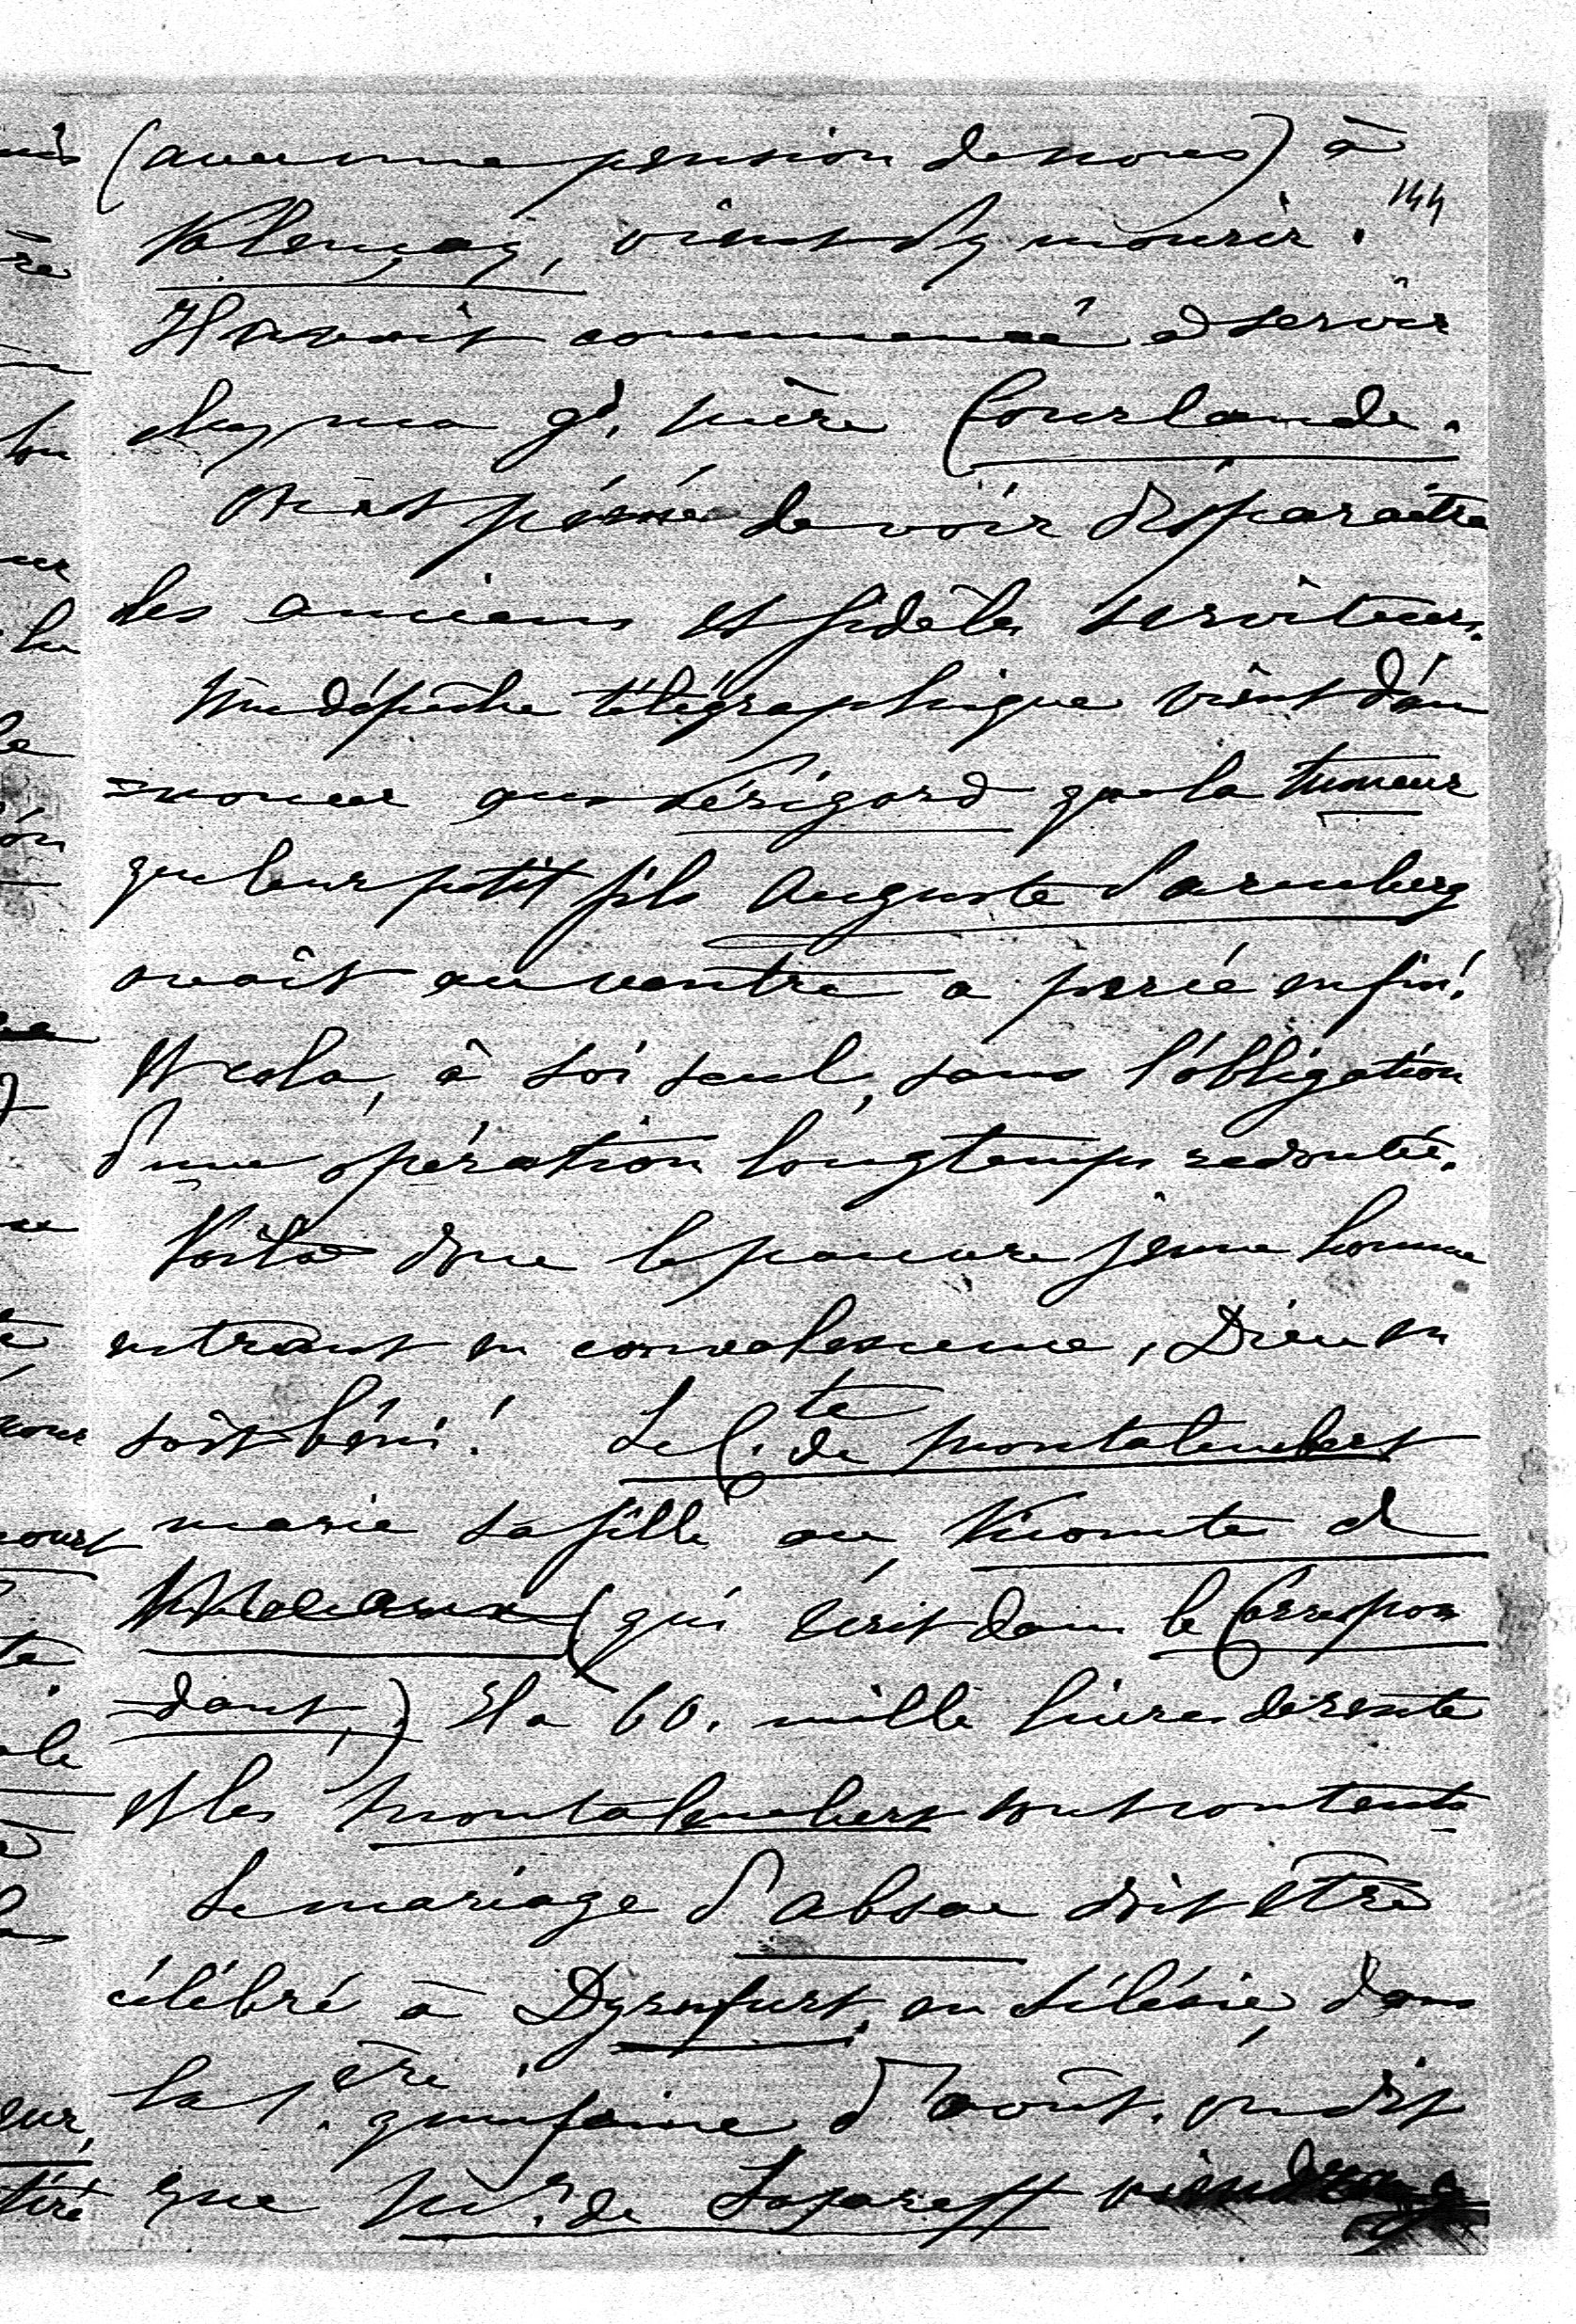 (avec une pension de nous) à
144
Valençay, vient d'y mourir.
Il avait commencé à servir
chez ma gd. mère Courlande.
On est peiné de voir disparaître
les anciens et fidèles serviteurs.
Une dépêche télégraphique vient d'an
=noncer aux Périgord que la tumeur
que leur petit fils Auguste d'Arenberg
avait au ventre a percée enfin!
et cela, à soi seul, sans l'obligation
d'une opération longtemps redoutée.
Voilà donc le pauvre jeune homme
entrant en convalescence, Dieu en
soit béni! Le Cte de Montalembert
marie sa fille au Vicomte de
Meaux (qui écrit dans le Correspon
=dant,) Il a 60. mille livres de rente
et les Montalembert sont contents
Le mariage d'absac doit être
célébré à Dyrnfurt, en Silésie, dans
la 1ère quinzaine d'août. On dit
que Mr. de Lazareff viendra